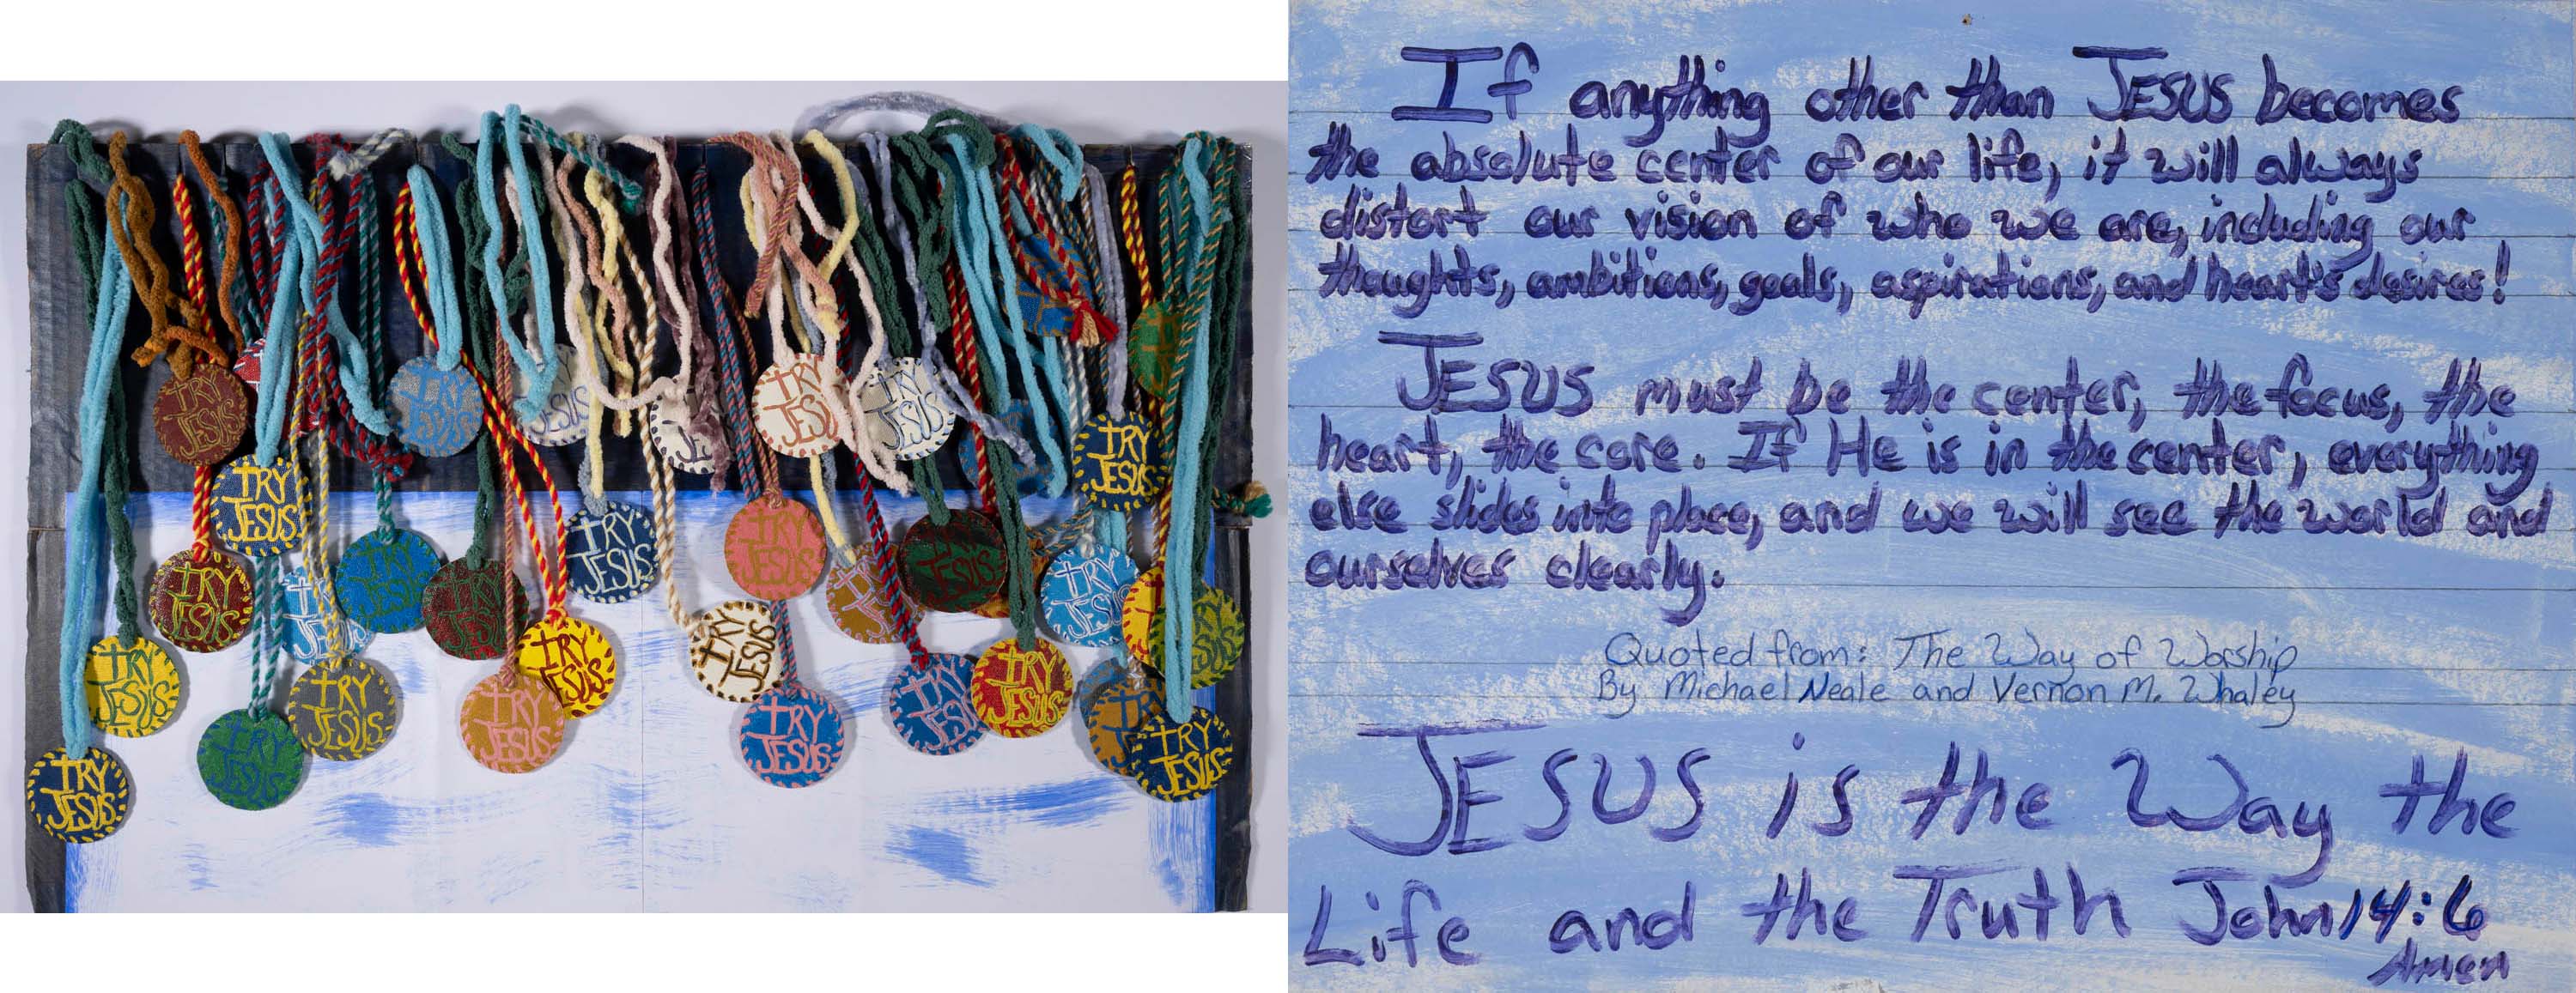 TRY
JESUS
TRY
JESUS
JESUS
TRY
JESUS
TRY
JESUS
TRY
JESUS
TRY
JESUS
TRY
JESUS
TRY
JESUS
TRY
JESUS
TRY
JESUS
TRY
JESUS
TRY
JESUS
TRY
JESUS
TRY
JESUS
TRY
JESUS
TRY
JESUS
JESUS
TRY
JESUS
TRY
JESUS
TRY
JESUS
TRY
JESUS
TRY
JESUS
TRY
JESUS
TRY
JESUS
TRY
JESUS
TRY
JESUS
TRY
JESUS
TRY
JESUS
If anything other than JESUS becomes
the absolute center of our life, it will always
distort our vision of who we are, including our
thoughts, ambitions, goals, aspirations, and heart's desires!
JESUS must be the center, the focus, the
heart, the core. If He is in the center, everything
else slides into place, and we will see the world and
ourselves clearly.
Quoted from: The Way of Worship
By Michael Neale and Vernon M. Whaley
JESUS is the Way the
Life and the Truth John 14:6
Amen